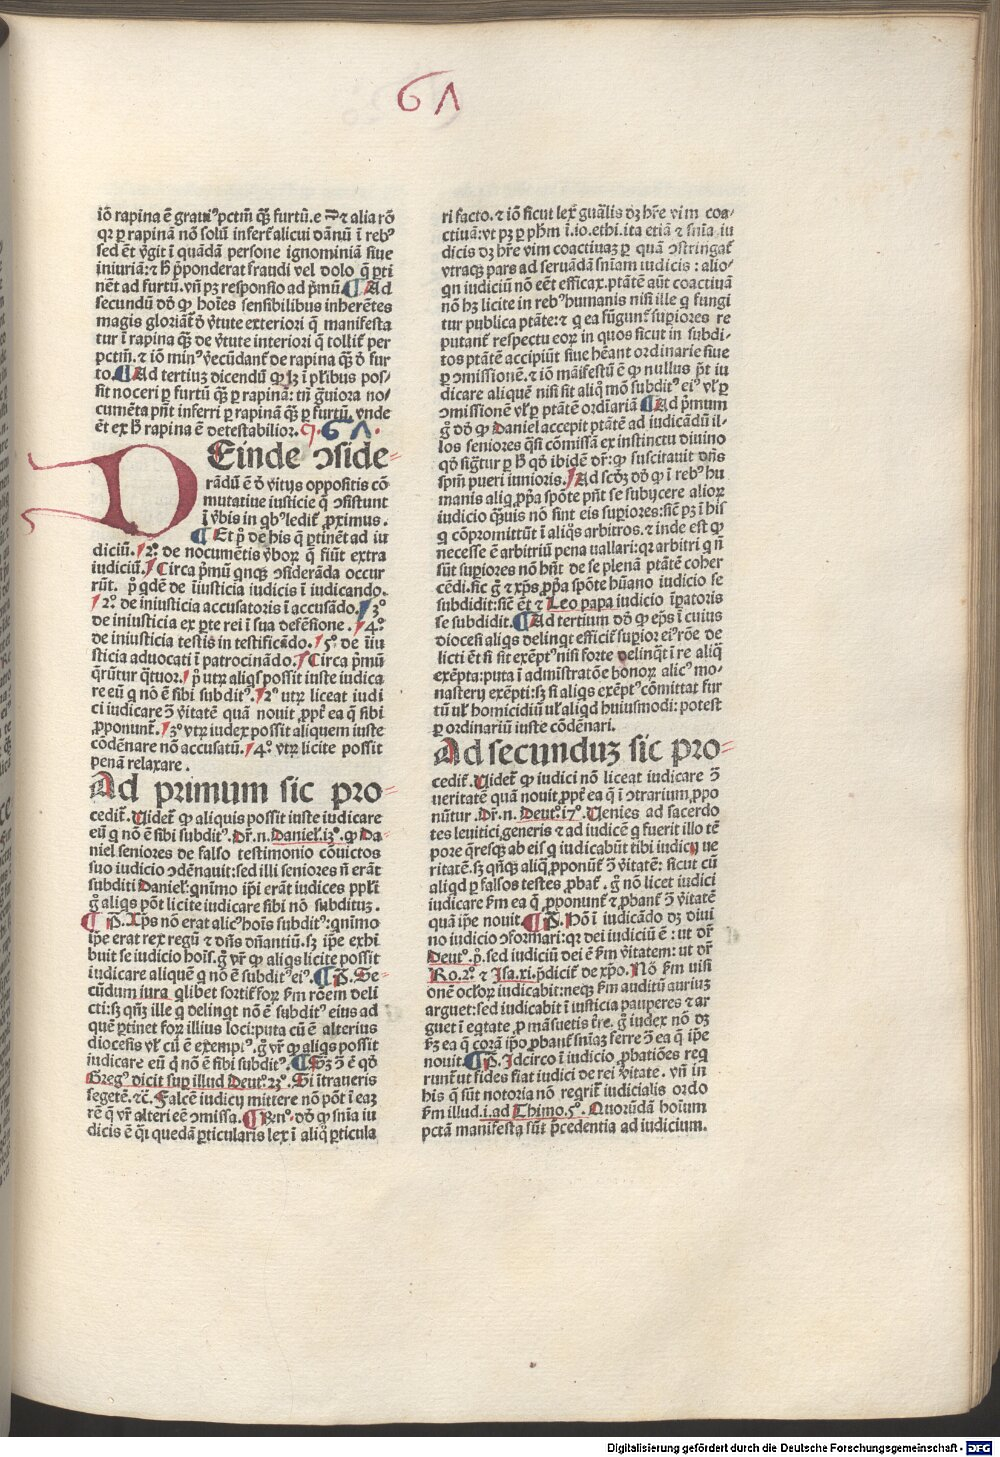 6Λ
iõ rapina ē graui⁹ pctm̄ q̄ȝ furtū.e⁊ alia rõ
qꝛ ꝑ rapinā nõ solū infert̄ alicui dānū ī reb⁹
sed ēt v̓git ī quādā persone ignominiā siue
iniuriā:⁊ h̓ p̄ponderat fraudi vel dolo q̄ ꝑti
nēt ad furtū.vñ pȝ responsio ad pͥmū. ¶ Ad
secundū dõ ꝙ hoīes sensibilibus inherētes
magis gloriāt̄ d̓ v̓tute exteriori q̄ manifesta
tur ī rapina q̄ȝ de v̓tute interiori q̄ tollit̄ per
pctm̄.⁊ iõ min⁹ v̓ecūdant̄ de rapina q̄ȝ d̓ fur
to. ¶ Ad tertiuȝ dicendū ꝙ lȝ ī pl̄ibus pos/
sit noceri ꝑ furtū q̄ȝ ꝑ rapinā: tñ g̓uiora no/
cumēta pñt inferri ꝑ rapinā q̄ȝ ꝑ furtū. vnde
ēt ex h̓ rapina ē detestabilior. q.6Λ.
DEinde ↄside=
rādū ē d̓ vitijs oppositis cõ
mutatiue iusticie q̄ ↄsistunt
ī v̓bis in qb⁹ ledit̄ ꝓximus.
¶ Et pͥ de his q̄ ꝑtinēt ad iu
diciū. 2º. de nocumētis v̓boꝝ q̄ fiūt extra
iudiciū. Circa pͥmū qnqȝ ↄsiderāda occur
rūt. pͥ gdē de iiusticia iudicis ī iudicando.
2º. de iniusticia accusatoris ī accusādo. 3º
de iniusticia ex ꝑte rei ī sua defēsione. 4º.
de iniusticia testis in testificādo. 5º. de iiu
sticia aduocati ī patrocinādo. Circa pͥmū
q̄rūtur q̄tuor. pͥ utꝝ aliqs possit iuste iudica
re eū q nõ ē sibi subdit⁹. 2º utꝝ liceat iudi
ci iudicare ↄ̄ v̓itatē quā nouit ꝓpt̄ ea q̄ sibi
ꝓponunt̄. 3º vtꝝ iudex possit aliquem iuste
cõdēnare nõ accusatū. 4º. vtꝝ licite possit
penā relaxare.
Ad primum sic pro=
cedit̄. Videt̄ ꝙ aliquis possit iuste iudicare
eū q nõ ē sibi subdit⁹. Dr̄.n. Daniel.13º. ꝙ Da=
niel seniores de falso testimonio cõuictos
suo iudicio ↄdēnauit:sed illi seniores ñ erāt
subditi Daniel:qnimo ip̄i erāt iudices ppl̓i
g̓ aliqs põt licite iudicare sibi nõ subdituȝ.
¶ P̄. Xp̄s nõ erat alic⁹ hoīs subdit⁹:qnimo
ip̄e erat rex regū ⁊ dñs dñantiū.sȝ ip̄e exhi
buit se iudicio hoīs.g̓ vr̄ ꝙ aliqs licite possit
iudicare aliquē q nõ ē subdit⁹ ei⁹. ¶ P̄. Se
cūdum iura qlibet sortit̄ foꝝ ẜm rõem deli
cti:sȝ qñȝ ille q delinqt nõ ē subdit⁹ eius ad
quē ꝑtinet foꝝ illius loci:puta cū ē alterius
diocesis vl̓ cū ē exempt⁹.g̓ vr̄ ꝙ aliqs possit
iudicare eū q̄ nõ ē sibi subdit⁹. ¶ Sȝ ↄ̄ ē qd̓
Greg⁹ dicit suꝑ illud Deut̄.23º. Si itraueris
segetē.⁊c̄. Falcē iudicij mittere nõ põt ī eaȝ
rē q̄ vr̄ alteri eē ↄmissa. ¶ Rñº. dõ ꝙ sñia iu
dicis ē q̄i quedā ꝑticularis lex ī aliq̄ ꝑticula
ri facto.⁊ iõ sicut lex gn̄alis dȝ hr̄e vim coa/
ctiuā:vt pȝ ꝑ pḣm ī.io.ethi.ita etiā ⁊ sñia iu
dicis dȝ hr̄e vim coactiuaȝ ꝑ quā ↄstringat̄
vtraqȝ pars ad seruādā sñiam iudicis : alio/
qn iudiciū nõ eēt efficax.ptātē aūt coactiuā
nõ hȝ licite in reb⁹ humanis nisi ille q fungi
tur publica ptāte:⁊ q ea fūgunt̄ suꝑiores re
putant̄ respectu eoꝝ in quos sicut in subdi/
tos ptātē accipiūt siue hēant ordinarie siue
ꝑ ↄmissionē.⁊ iõ māifestū ē ꝙ nullus pt̄ iu
dicare aliquē nisi sit aliqͦ mõ subdit⁹ ei⁹ vl̓ ꝑ
ↄmissionē vl̓ ꝑ ptātē ordīariā ¶ Ad pͥmum
g̓ dõ ꝙ Daniel accepit ptātē ad iudicādū il/
los seniores q̄si cõmissā ex instinctu diuino
qd̓ sig̓tur ꝑ h̓ qd̓ ibidē dr̄:ꝙ suscitauit dñs
spm̄ pueri iunioris. Ad scd̓ȝ dõ ꝙ ī reb⁹ hu
manis aliq̄ ꝓpͥa spõte pñt se subijcere alioꝝ
iudicio q̄ȝuis nõ sint eis suꝑiores:sic̄ pȝ ī his
q cõpromittūt ī aliqͦs arbitros.⁊ inde est ꝙ
necesse ē arbitriū pena uallari:qꝛ arbitri q ñ
sūt suꝑiores nõ hñt de se plenā ptātē coher
cēdi.sic̄ g̓ ⁊ xp̄s ꝓpͥa spõte hūano iudicio se
subdidit:sic̄ ēt ⁊ Leo papa iudicio īꝑatoris
se subdidit. ¶ Ad tertium dõ ꝙ ep̄s ī cuius
diocesi aliqs delinqt efficit̄ suꝑior ei⁹ rõe de
licti ēt si sit exēpt⁹ nisi forte delinqt ī re aliq̄
exēpta:puta ī admīstratõe bonoꝝ alic⁹ mo/
nasterij exēpti:sȝ si aliqs exēpt⁹ cõmittat fur
tū ul̓ homicidiū ul̓ aliqd huiusmodi: potest
ꝑ ordinariū iuste cõdēnari.
Ad secunduȝ sic pro=
cedit̄. Videt̄ ꝙ iudici nõ liceat iudicare ↄ̄
ueritatē quā nouit ꝓpt̄ ea q̄ ī ↄtrarium ꝓpo
nūtur. Dr̄.n. Deut̄.17º. Venies ad sacerdo
tes leuitici generis ⁊ ad iudicē q fuerit illo tē
pore q̄resqȝ ab eis q iudicabūt tibi iudicij ue
ritatē.sȝ qñqȝ aliq̄ ꝓponūt̄ ↄ̄ v̓itatē: sicut cū
aliqd ꝑ falsos testes ꝓbat̄. g̓ nõ licet iudici
iudicare ẜm ea q̄ ꝓponunt̄ ⁊ ꝓbant̄ ↄ̄ v̓itatē
quā ip̄e nouit. ¶ P̄. Hõ ī iudicādo dȝ diui
no iudicio ↄformari:qꝛ dei iudiciū ē : ut dr̄
Deut̄.pͥ.sed iudiciū dei ē ẜm v̓itatem: ut dr̄
Ro.2º. ⁊ Isa.xi. p̄dicit̄ de xp̄o. Nõ ẜm uisi
onē ocl̓oꝝ iudicabit:neqȝ ẜm auditū auriuȝ
arguet:sed iudicabit ī iusticia pauperes ⁊ ar
guet ī eqtate ꝓ māsuetis tr̄e. g̓ iudex nõ dȝ
ẜȝ ea q̄ corā ip̄o ꝓbant̄ sñiaȝ ferre ↄ̄ ea q̄ ip̄e
nouit. ¶ P̄. Idcirco ī iudicio ꝓbatiões req
runt̄ ut fides fiat iudici de rei v̓itate. vñ in
his q̄ sūt notoria nõ regrit̄ iudicialis ordo
ẜm illud.i.ad Thimo.5º. Quorūdā hoīum
pctā manifesta sūt p̄cedentia ad iudicium.
Digitalisierung gefördert durch die Deutsche Forschungsgemeinschaft - DFG